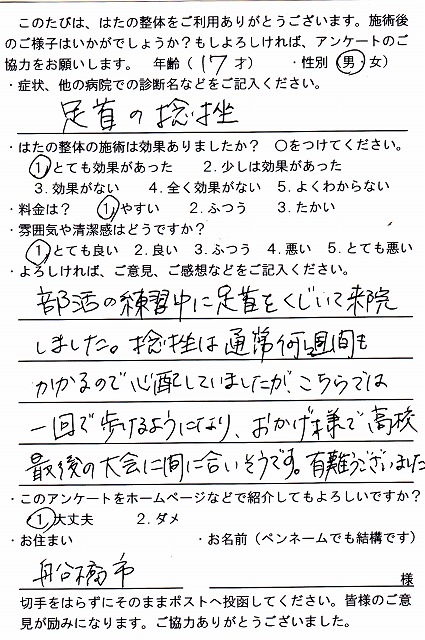 このたびは、はたの整体をご利用ありがとうございます。施術後
のご様子はいかがでしょうか？もしよろしければ、アンケートのご
協力をお願いします。 年齢（17才） ・性別（男・女）
・症状、他の病院での診断名などをご記入ください。
足首の捻挫
・はたの整体の施術は効果ありましたか？ 〇をつけてください。
1．とても効果があった 2．少しは効果があった
3．効果がない 4．全く効果がない 5．よくわからない
・料金は？ 1．やすい 2．ふつう 3．たかい
・雰囲気や清潔感はどうですか？
1．とても良い 2．良い 3．ふつう 4．悪い 5．とても悪い
・よろしければ、ご意見、ご感想などをご記入ください。
部活の練習中に足首をくじいて来院
しました。捻挫は通常何週間も
かかるので心配していましたが、こちらでは
一回で歩けるようになり、おかげ様で高校
最後の大会に間に合いそうです。有難うございました
・このアンケートをホームページなどで紹介してもよろしいですか？
1．大丈夫 2．ダメ
・お住まい ・お名前（ペンネームでも結構です）
舟谷橋市 様
切手をはらずにそのままポストへ投函してください。皆様のご意
見が励みになります。ご協力ありがとうございました。